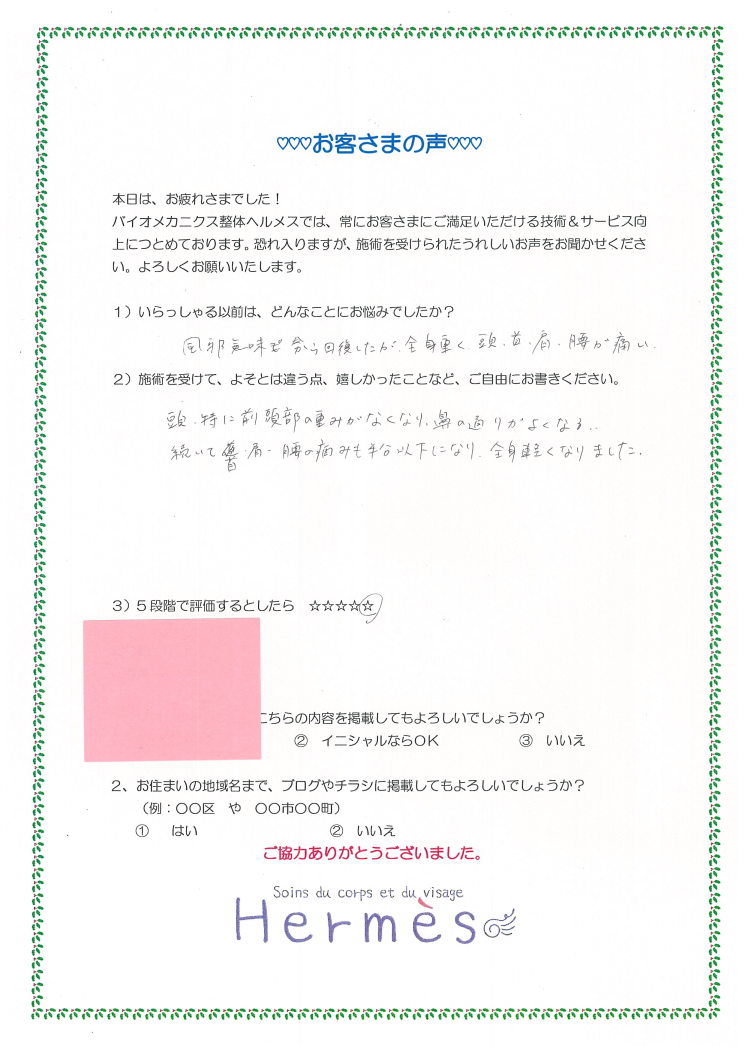 ♡♡♡お客さまの声♡♡♡
本日は、お疲れさまでした！
バイオメカニクス整体ヘルメスでは、常にお客さまにご満足いただける技術＆サービス向
上につとめております。恐れ入りますが、施術を受けられたうれしいお声をお聞かせくださ
い。よろしくお願いいたします。
１）いらっしゃる以前は、どんなことにお悩みでしたか？
風邪気味で 回復したが、全身重く、頭・首・肩・腰が痛い。
２）施術を受けて、よそとは違う点、嬉しかったことなど、ご自由にお書きください。
頭、特に前頭部の重みがなくなり、鼻の通りがよくなる。
続いて首・肩・腰の痛みも半分以下になり、全身軽くなりました。
３）５段階で評価するとしたら　☆☆☆☆☆
こちらの内容を掲載してもよろしいでしょうか？
②　イニシャルならＯＫ　③　いいえ
２、お住まいの地域名まで、ブログやチラシに掲載してもよろしいでしょうか？
（例：〇〇区　や　〇〇市〇〇町）
①　はい　②　いいえ
ご協力ありがとうございました。
Soins du corps et du visage
Hermès